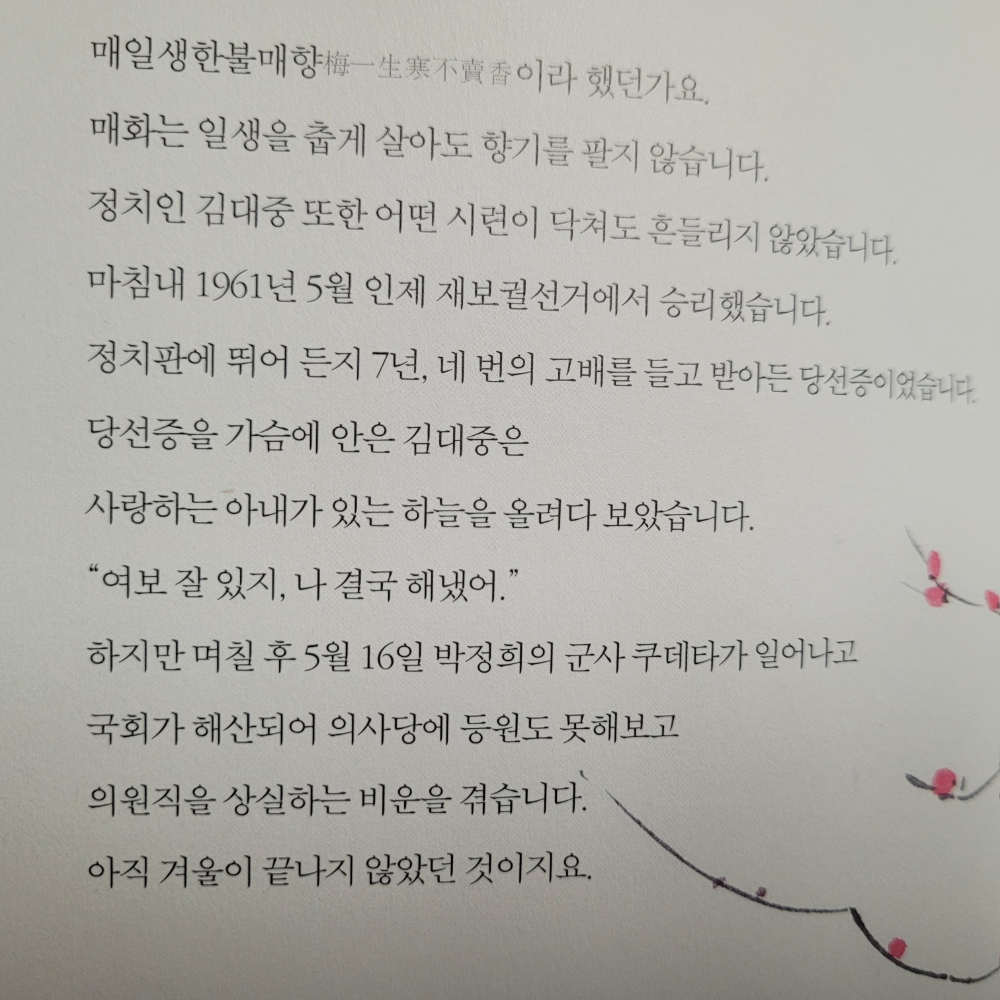 매일생한불매향梅一生寒不賣香이라 했던가요.
매화는 일생을 춥게 살아도 향기를 팔지 않습니다.
정치인 김대중 또한 어떤 시련이 닥쳐도 흔들리지 않았습니다.
마침내 1961년 5월 인제 재보궐선거에서 승리했습니다.
정치판에 뛰어 든지 7년, 네 번의 고배를 들고 받아든 당선증이었습니다.
당선증을 가슴에 안은 김대중은
사랑하는 아내가 있는 하늘을 올려다 보았습니다.
“여보 잘 있지, 나 결국 해냈어.”
하지만 며칠 후 5월 16일 박정희의 군사 쿠데타가 일어나고
국회가 해산되어 의사당에 등원도 못해보고
의원직을 상실하는 비운을 겪습니다.
아직 겨울이 끝나지 않았던 것이지요.